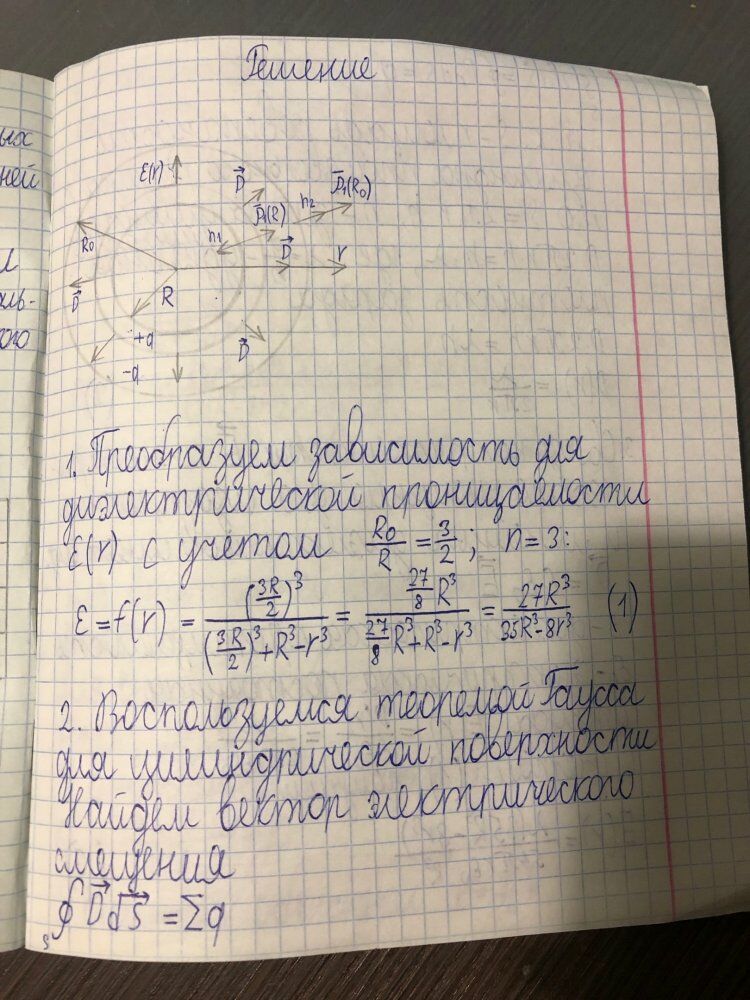 ых
ней
Решение
ε(r)
D⃗
P⃗₁(R₀)
n₂
P⃗₁(R)
n₁
R₀
D⃗
r
D⃗
R
+q
-q
D⃗
оль-
кого
1. Преобразуем зависимость для
диэлектрической проницаемости
ε(r) с учётом R₀/R = 3/2; n=3:
ε = f(r) = (3R/2)³/((3R/2)³+R³-r³) = (27/8 R³)/(27/8 R³+R³-r³) = 27R³/(35R³-8r³) (1)
2. Воспользуемся теоремой Гаусса
для цилиндрической поверхности
Найдем вектор электрического
смещения
∮ D⃗ dS⃗ = Σq
s